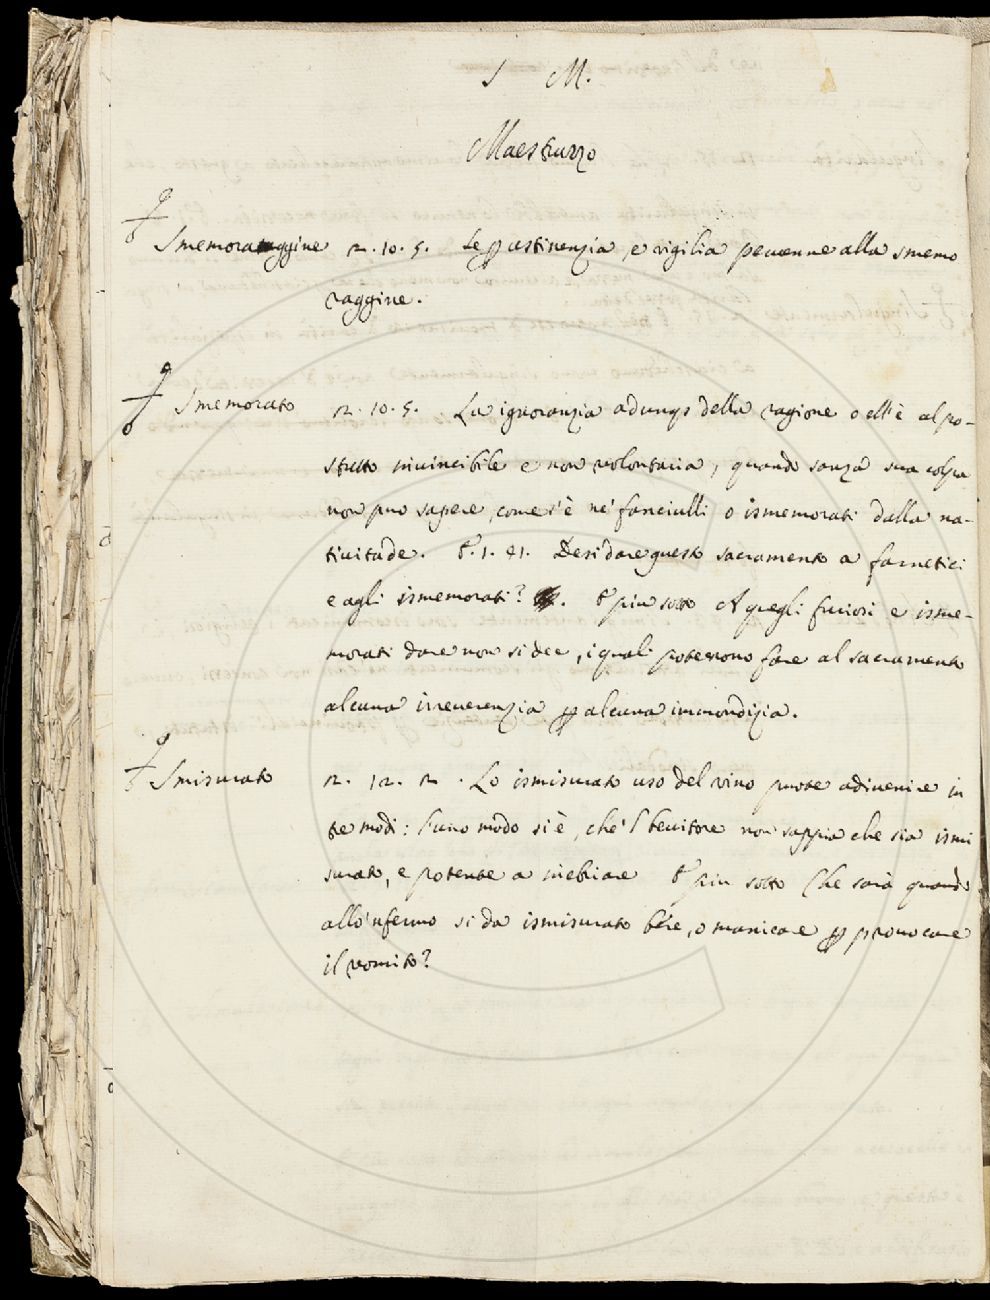 S M.
Maestruzzo
Smemoraggine 2. 10. 5. Se p astinenzia, e vigilia pervenne alla smemo
raggine.
Smemorato 2. 10. 5. La ignoranzia adunqs della ragione o ell'è al po-
stutto invincibile e non volontaria, quando sanza sua colpa
non può sapere, come s'è ne' fanciulli o ismemorati dalla na-
tivitade. E 1. 21. Desi dare questo sacramento a farnetici
e agli ismemorati? E più sotto A quegli furiosi e isme-
morati dare non si dee, i quali potessono fare al sacramento
alcuna irreverenzia p alcuna immondizia.
Smisurato 2. 12. 2. Lo ismisurato uso del vino puote advenire in
tre modi: l'uno modo si è, che'l bevitore non sappia che sia ismi
surato, e potente a inebriare E più sotto Che sarà quando
allo'nfermo si da ismisurato bére, o manicare p provocare
il vomito?